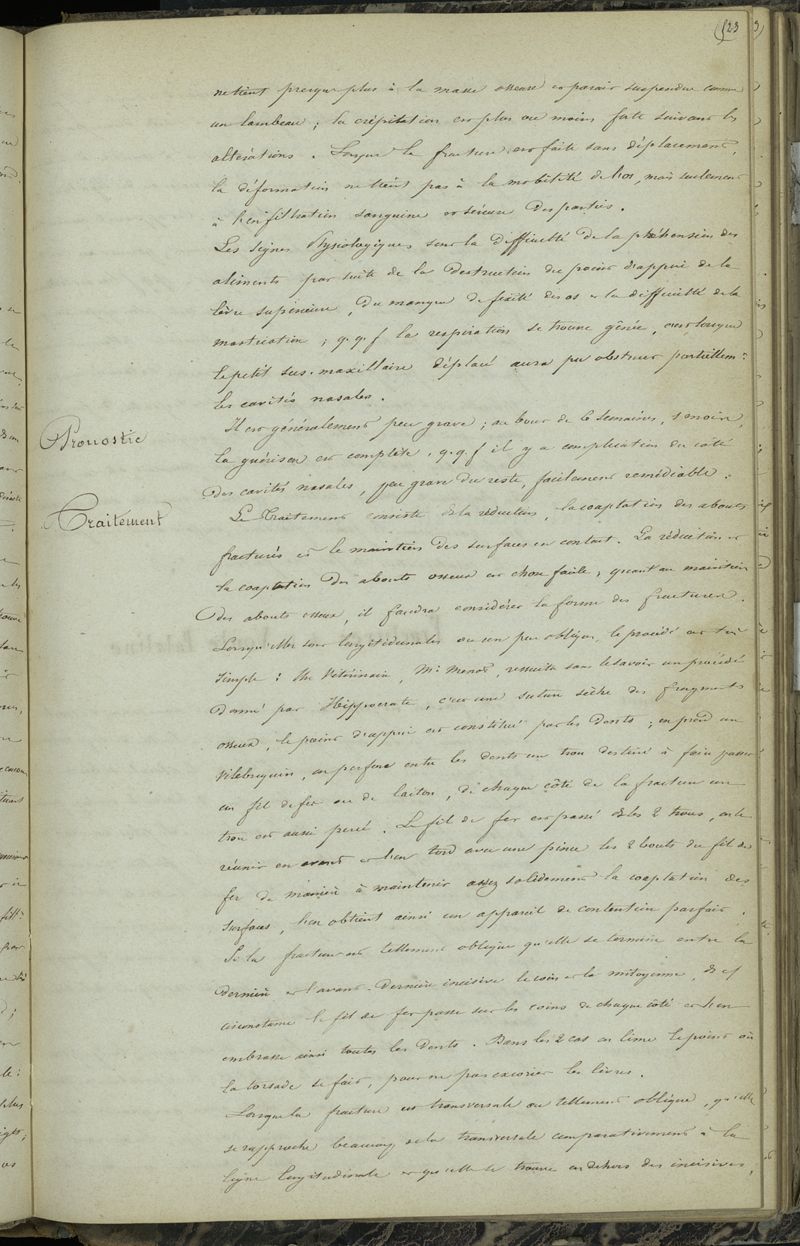 123
ne tient presque plus à la masse osseuse et parait suspendue comme
un lambeau ; la crépitation est plus ou moins forte suivant les
altérations. Lorsque la fracture est faite sans déplacement,
la déformation ne tient pas à la mobilité de l'os, mais seulement
à l'infiltration sanguine et séreuse des parties.
Les signes physiologiques sont la difficulté de la préhension des
aliments par suite de la destruction du point d'appui de la
lèvre supérieure, du manque de fixité des os et la difficulté de la
mastication ; q.q.f la respiration se trouve gênée, c'est lorsque
le petit sus-maxillaire déplacé aura pu obstruer partiellem:
les cavités nasales.
Pronostic
Il est généralement peu grave ; au bout de 6 semaines, 1 mois,
la guérison est complète. q.q.f il y a complication du côté
des cavités nasales, peu grave du reste, facilement remédiable.
Traitement
Le Traitement consiste ds la réduction, la coaptation des abouts
fracturés et le maintien des surfaces en contact. La réduction et
la coaptation des abouts osseux est chose facile ; quant au maintien
des abouts osseux, il faudra considérer la forme des fractures.
Lorsqu'elles sont longitudinales ou un peu obliques, le procédé est très
simple : Un Vétérinaire, Mr, ressuscita sans le savoir un procédé
donné par Hippocrate, c'est une suture sèche des fragments
osseux, le point d'appui est constitué par les dents ; on prend un
vilebrequin, on perfore entre les dents un trou destiné à faire passer
un fil de fer ou de laiton, de chaque côté de la fracture un
trou est aussi percé. Le fil de fer est passé ds les 2 trous, on le
réunit en avant et l'on tord avec une pince les 2 bouts du fil de
fer de manière à maintenir assez solidement la coaptation des
surfaces, l'on obtient ainsi un appareil de contention parfait.
Si la fracture est tellement oblique qu'elle se termine entre la
dernière et l'avant-dernière incisive le coin et la mitoyenne, ds c/
circonstance le fil de fer passe sur les coins de chaque côté et l'on
embrasse ainsi toutes les dents. Dans les 2 cas on lime le point où
la torsade se fait, pour ne pas excorier les lèvres.
Lorsque la fracture est transversale ou tellement oblique, qu'elle
se rapproche beaucoup de la transversale comparativement à la
ligne longitudinale et qu'elle se trouve en dehors des incisives,